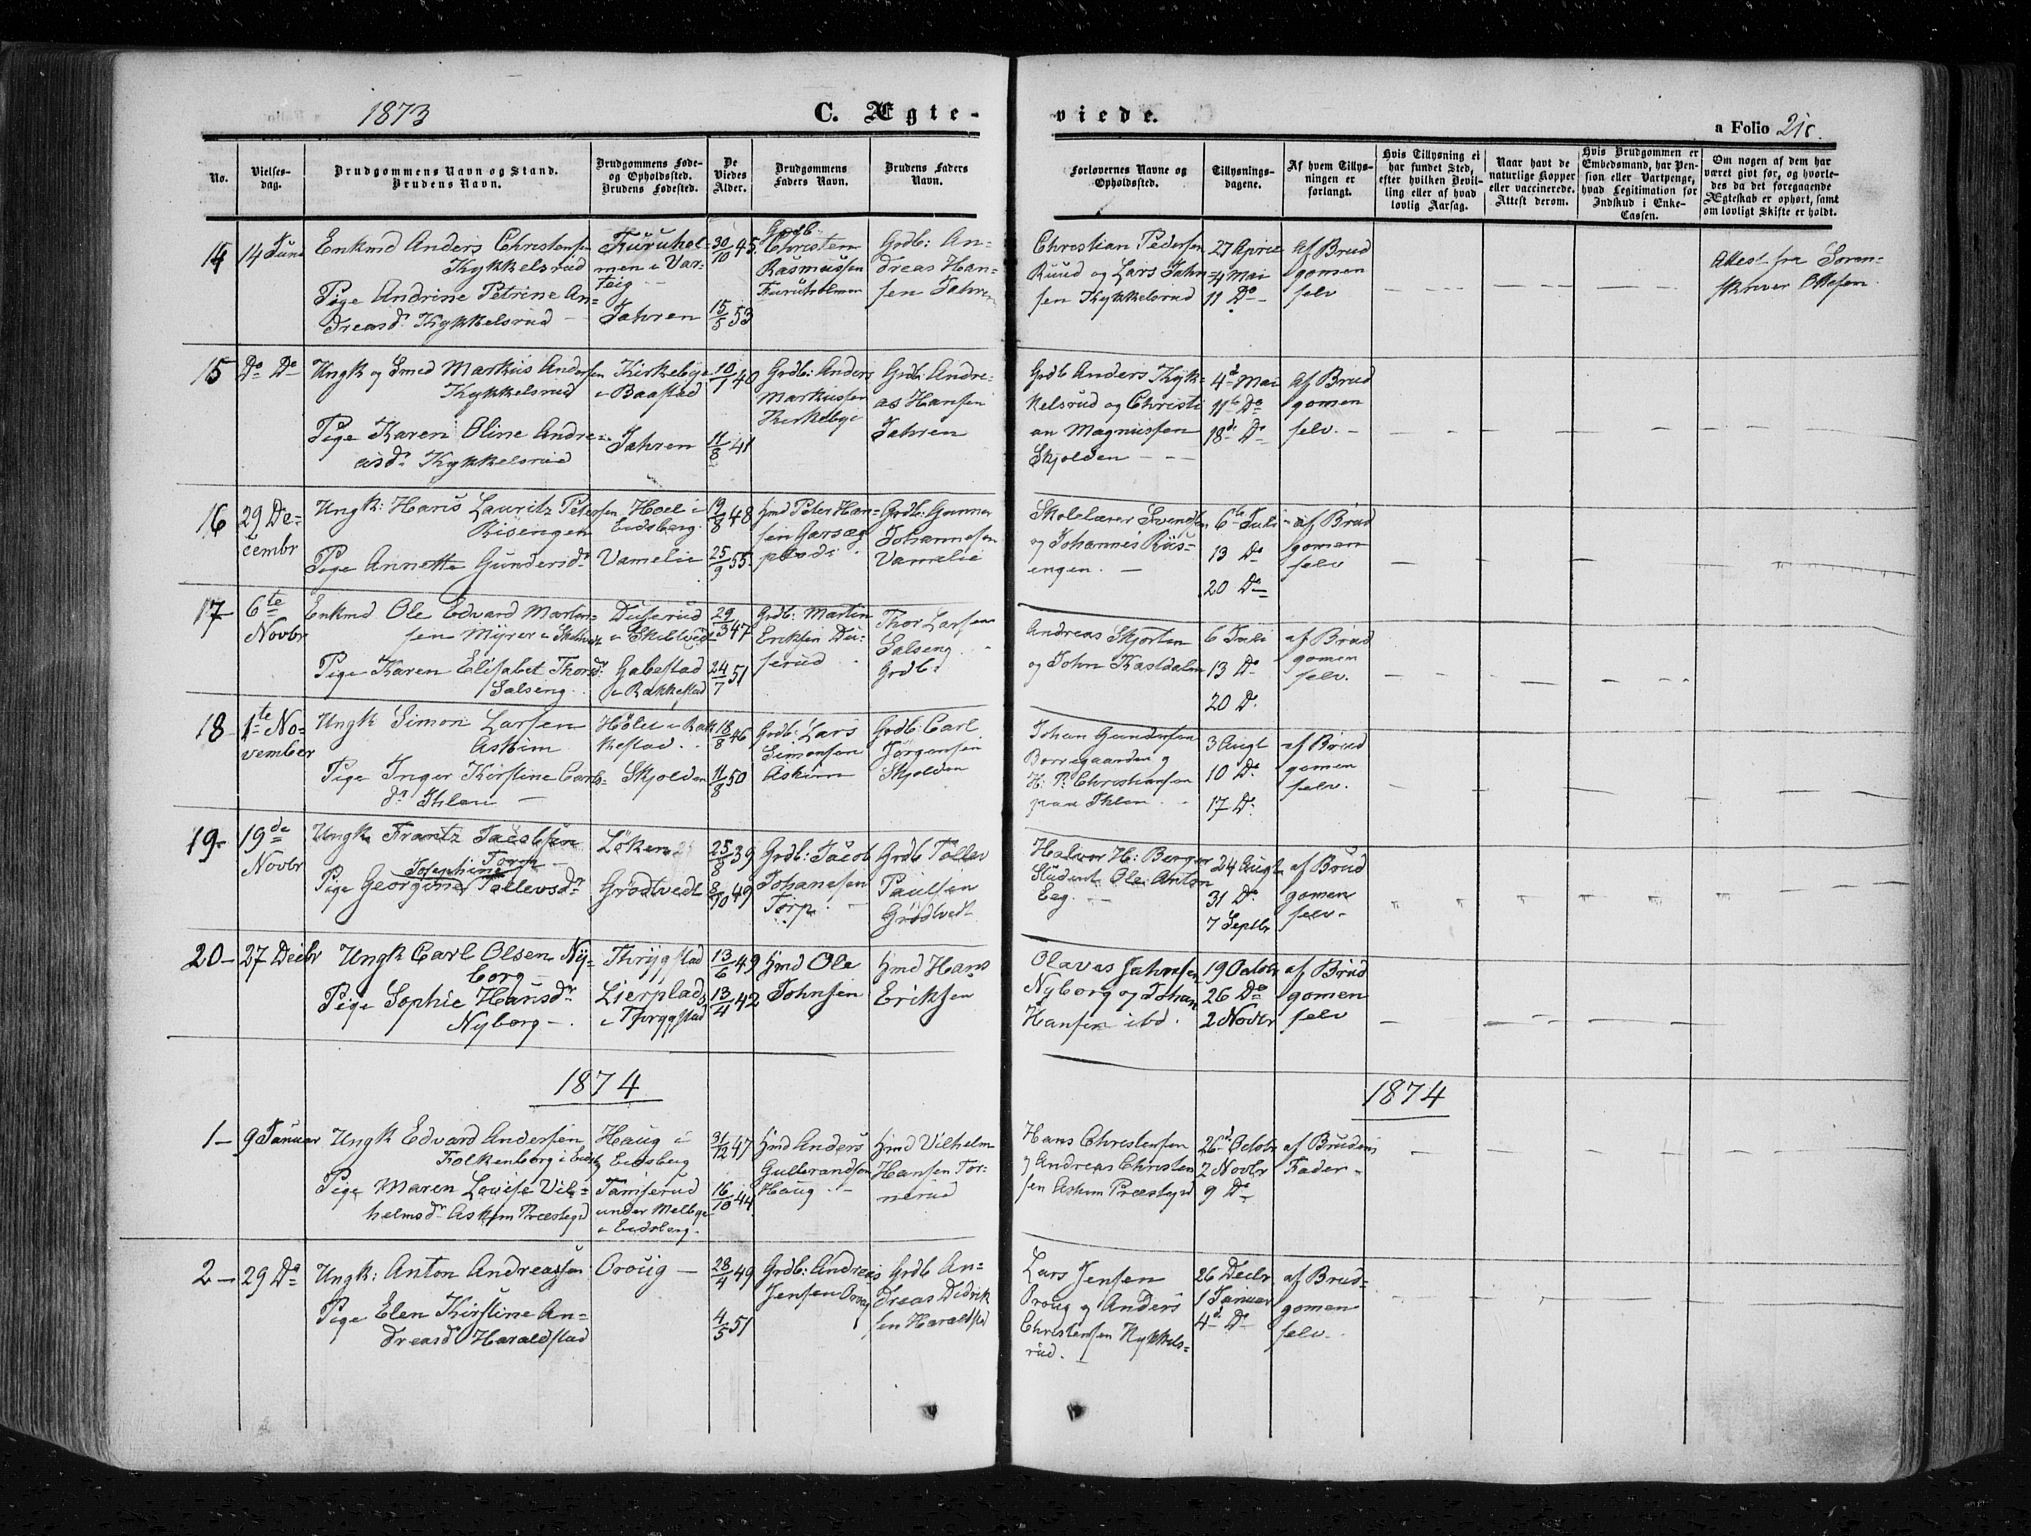 1873
C. Ægte-
viede.
a Folio 218.
No.
Vielses-
dag.
Brudgommens Navn og Stand.
Brudens Navn.
Brudgommens Føde-
og Opholdssted.
Brudens Fødested.
De
Viedes
Alder.
Brudgommens
Faders Navn.
Brudens Faders
Navn.
Forlovernes Navne og
Opholdssted.
Tillysnings-
dagene.
Af hvem Tillys-
ningen er
forlangt.
Hvis Tillysning ei
har fundet Sted,
efter hvilken Bevil-
ling eller af hvad
lovlig Aarsag.
Naar havt de
naturlige Kopper
eller vaccinerede.
Attest derom.
Hvis Brudgommen er
Embedsmand, har Pen-
sion eller Vartpenge,
hvad Legitimation for
Indskud i Enke-
Cassen.
Om nogen af dem har
været givt for, og hvorle-
des da det foregaaende
Ægteskab er ophørt, samt
om lovligt Skifte er holdt.
14
14 Juni
Enkmd Anders Christensen
Kykkelsrud
Pige Andrine Petrine An-
dreasdr Kykkelsrud
Furuhol-
men i Var-
teig
Jahren
30/10 45
15/5 53
Grdb.
Christen
Rasmussen
Furuholmen
Grdb: An-
dreas Han-
sen Jahren
Christian Pedersen
Ruud og Lars Jahn-
sen Kykkelsrud
27 April
4 Mai
11 Do
af Brud
gomen
selv
Attest fra Soren-
skriver Ottesen.
15
Do Do
Ungk og Smed Markus Andersen
Kykkelsrud
Pige Karen Oline Andre-
asdr Kykkelsrud
Kirkebye
i Baastad
Jahren
10/1 40
11/8 41
Grdb: Anders
Markussen
Kirkebye
Grdb: Andre-
as Hansen
Jahren
Grdb Anders Kyk-
kelsrud og Christi
an Magnussen
Skjolden
4de Mai
11te Do
18de Do
af Brud
gomen
selv.
16
29 De-
cembr
Ungk: Hans Lauritz Petersen
Risengen
Pige Annette Gundersdr
Hoel i
Eidsberg.
Vamelie
19/8 48
25/9 55
Hmd Peter Han-
sen
Grdb: Gunner
Johannesen
Vamelie
Skolelærer Svendsen
og Johannes Riis-
engen.
6te Juli
13 Do
20 Do
af Brud
gomen
selv
17
6te
Novbr
Enkmd Ole Edvard Martin-
sen Myrer i Skibtvet
Pige Karen Elisabet Thorsdr
Salseng.
Duserud
i Skibtvedt
Gabestad
i Rakkestad
29/3 47
24/7 51
Grdb: Martin
Eriksen Du-
serud
Thor Larsen
Salseng
Grdb:
Andreas Skjorten
og John Kastdalen
6 Juli
13 Do
20 Do
af Brud
gomen
selv.
18
1te No-
vember
Ungk Simon Larsen
Askim
Pige Inger Kirstine Carls-
dr Ihlen
Hølet i Rak
kestad.
Skjolden
18/8 46
11/8 50
Grdb: Lars
Simonsen
Askim
Grdb: Carl
Jørgensen
Skjolden
Johan Gundersen
Borregaarden og
H. P. Christiansen
paa Ihlen.
3 Augt
10 Do
17 Do
af Brud
gomen
selv.
19
19de
Novbr
Ungk Frantz Jacobsen
Torp
Josephine
Pige Georgine Tollevsdr
Løken
Grødtvedt
25/8 39
8/10 49
Grdb: Jacob
Johanesen
Torp
Grdb Tollev
Paulsen
Grødtvedt
Halvor H: Berger
Student Ole Anton
Eeg.
24 Augt
31 Do
7 Septbr
af Brud
gomen
selv.
20
27 Decbr
Ungk Carl Olsen Ny-
borg
Pige Sophie Hansdr
Nyborg
Thrygstad
Lierplads
i Thrygstad
13/6 49
13/4 42
Hmd Ole
Johnsen
Hmd Hans
Eriksen
Olaves Jahnsen
Nyborg og Johan
Hansen ibd.
19 Octobr
26 Do
2 Novbr
af Brud
gomen
selv
1874
1874
1
9 Januar
Ungk Edvard Andersen
Folkenborg i Eidsbg
Pige Maren Lovise Vil-
helmsdr Askim Præstegd
Haug i
Eidsberg
Tamserud
under Melbye
i Eidsberg.
31/12 47
16/10 44
Hmd Anders
Gulbrandsen
Haug
Hmd Vilhelm
Hansen Tor-
nerud
Hans Christensen
og Andreas Christen
sen Askim Præstegd
26 Octobr
2 Novbr
9 Do
af Brudens
Fader
2
29 Do
Ungk: Anton Andreassen
Pige Elen Kirstine An-
dreasdr Haraldstad
Oroug
28/4 49
4/5 51
Grdb: Andreas
Jensen Oroug
Grdb An-
dreas Didrik
sen Haraldstad
Lars Jensen
Oroug og Anders
Christensen Kykkels-
rud.
26 Decbr
1 Januar
4de Do
af Brud-
gomen
selv.